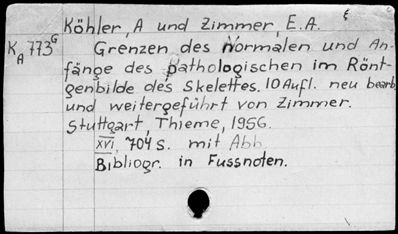 Köhler, A und Zimmer, E.A.
K A 773 G Grenzen des Normalen und An-
fänge des pathologischen im Rönt-
genbilde des Skelettes. 10 Aufl. neu bearb.
und weitergeführt von Zimmer.
Stuttgart, Thieme, 1956.
XVI, 704 S. mit Abb.
Bibliogr. in Fussnoten.